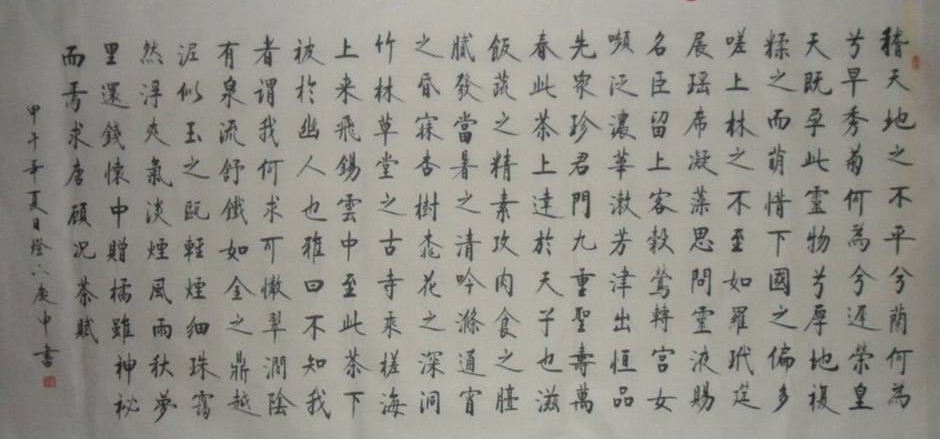 稽天地之不平兮蘭何為
兮早秀菊何為兮遲榮皇
天既孕此靈物兮厚地複
糅之而萌惜下國之偏多
嗟上林之不至如羅玳筵
展瑤席凝藻思問靈液賜
名臣留上客穀鶯轉宮女
嚬泛濃華漱芳津出恒品
先眾珍君門九重聖壽萬
春此茶上達於天子也滋
飯蔬之精素攻肉食之膻
膩發當暑之清吟滌通宵
之昏寐杏樹桃花之深洞
竹林草堂之古寺乘槎海
上來飛錫雲中至此茶下
被於幽人也雅曰不知我
者謂我何求可憐翠澗陰
有泉流舒鐵如金之鼎越
泥似玉之甌輕煙細珠靄
然浮爽氣淡煙風雨秋夢
里還錢懷中贈橘雖神祕
而焉求唐顧況茶賦
甲午年夏日燈下庚申書